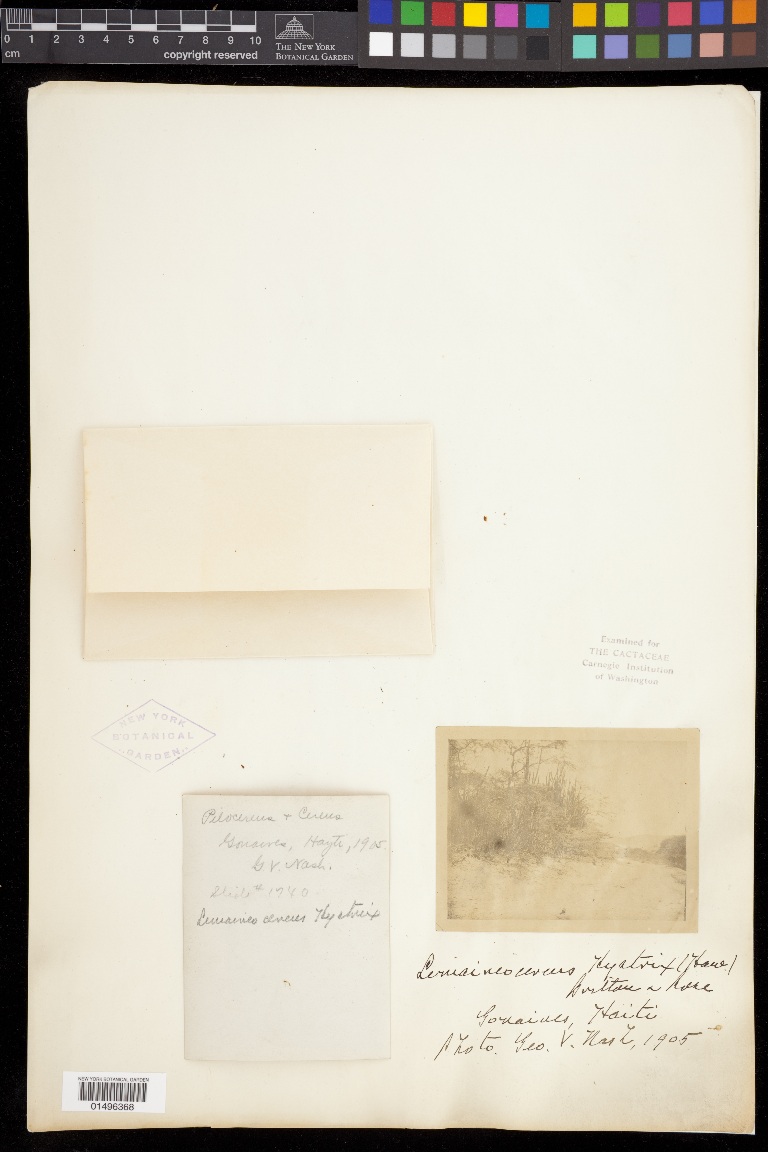 0 1 2 3 4 5 6 7 8 9 10
cm
copyright reserved
THE NEW YORK
BOTANICAL GARDEN
Examined for
THE CACTACEAE
Carnegie Institution
of Washington
NEW YORK
BOTANICAL
GARDEN
Pilocereus + Cereus
Gonaives, Hayti, 1905
G. V. Nash.
Slide # 1740
Lemaireocereus Hystrix
Lemaireocereus Hystrix (Haw.)
Britton & Rose
Gonaives, Haiti
Photo. Geo. V. Nash, 1905
NEW YORK BOTANICAL GARDEN
01496368